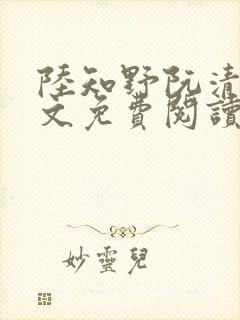 陸知野阮清
文免費閱讀
妙靈兒